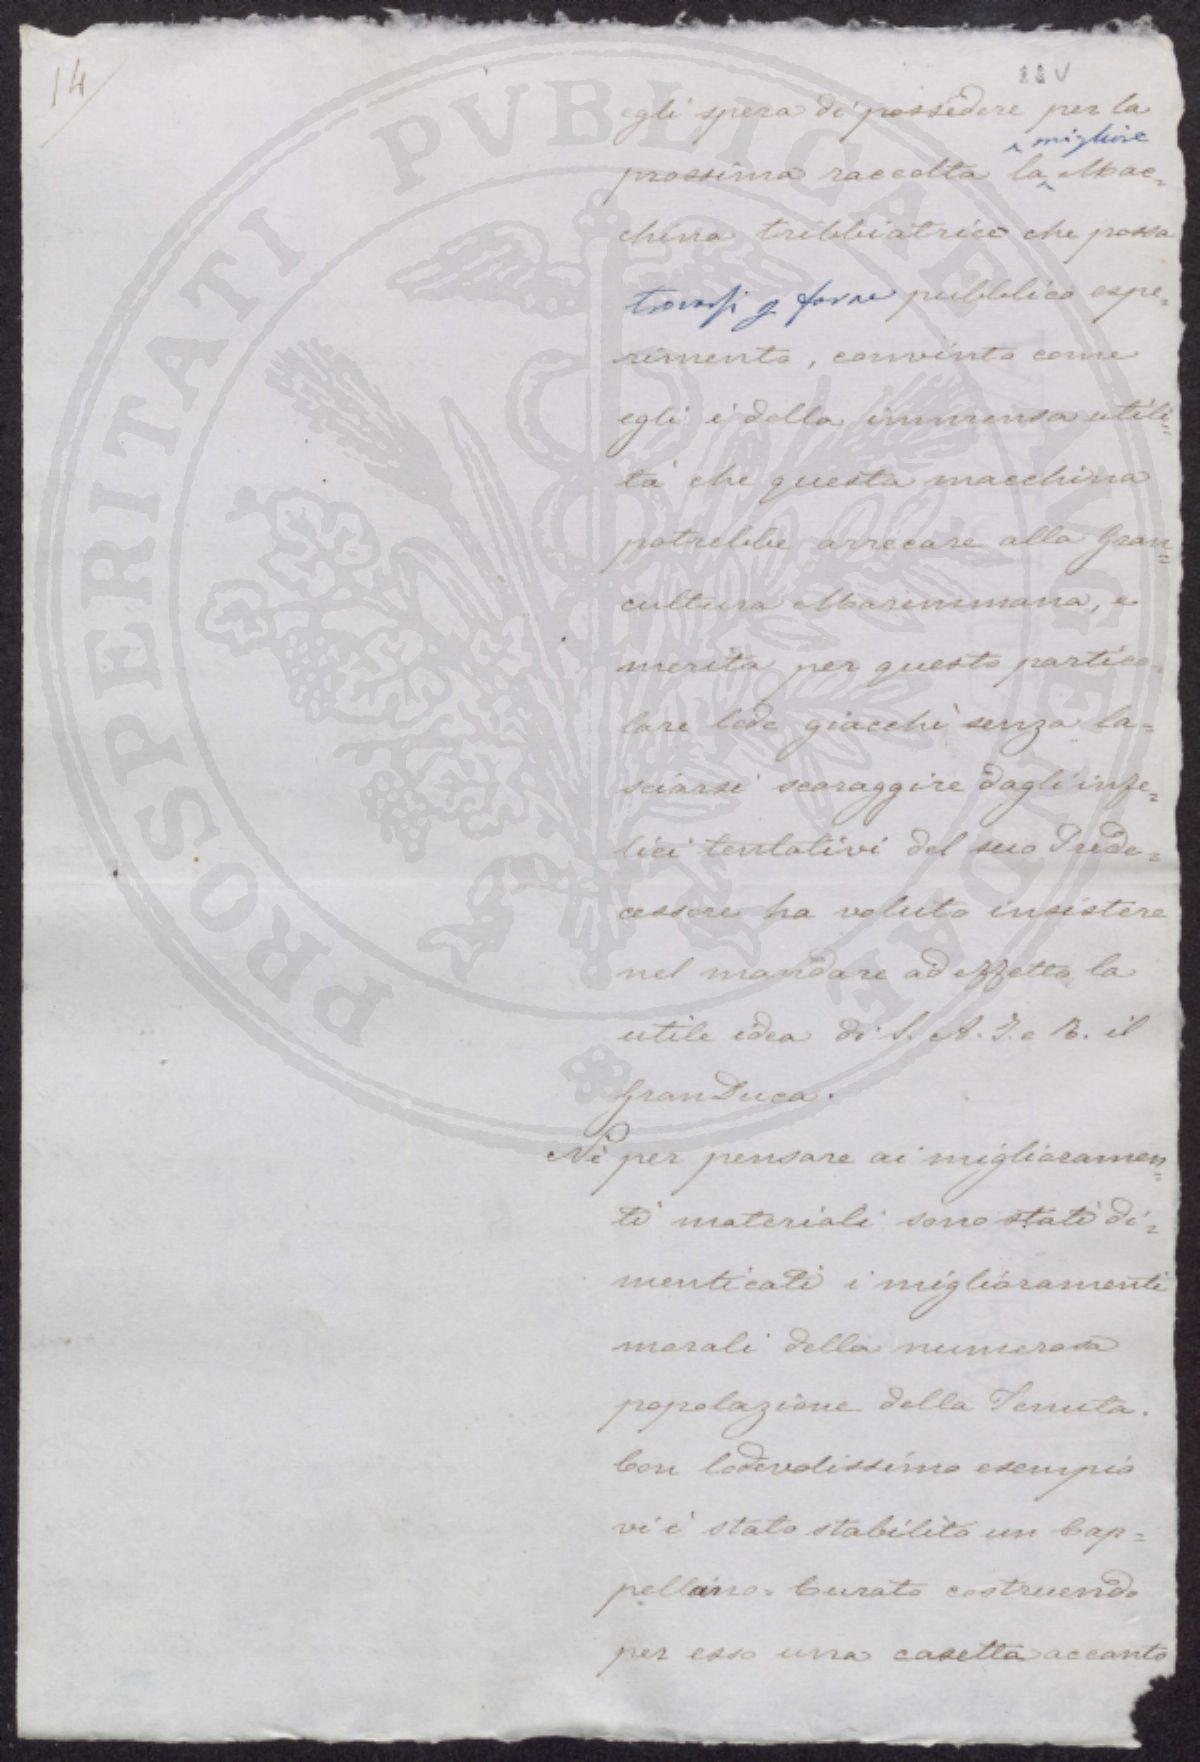 14
egli spera di possedere per la
migliore
prossima raccolta la Mac=
china tribbiatrice che possa
trovarsi p farne pubblico espe=
rimento, convinto come
egli è della immensa utili=
tà che questa macchina
potrebbe arrecare alla Gran=
cultura Maremmana, e
merita per questo partico=
lare lode giacchè senza la=
sciarsi scoraggire dagli infe=
lici tentativi del suo Prede=
cessore ha voluto insistere
nel mandare ad effetto la
utile idea di S. A. I. e R. il
GranDuca.
Nè per pensare ai miglioramen=
ti materiali sono stati di=
menticati i miglioramenti
morali della numerosa
popolazione della Tenuta.
Con lodevolissimo esempio
vi è stato stabilito un Cap=
pellano=Curato costruendo
per esso una casetta accanto
PROSPERITATI PVBLICAE AVGENDAE